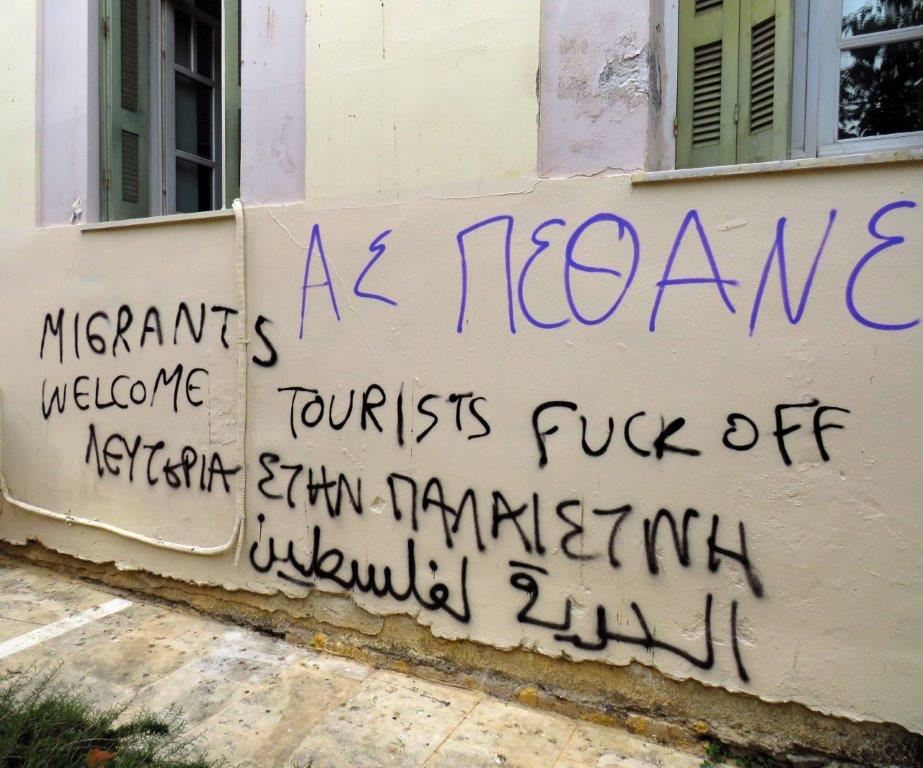 ΑΣ ΠΕΘΑΝΕ
MIGRANTS
WELCOME
TOURISTS FUCK OFF
ΛΕΥΤΕΡΙΑ ΣΤΗΝ ΠΑΛΑΙΣΤΙΝΗ
الحرية لفلسطين